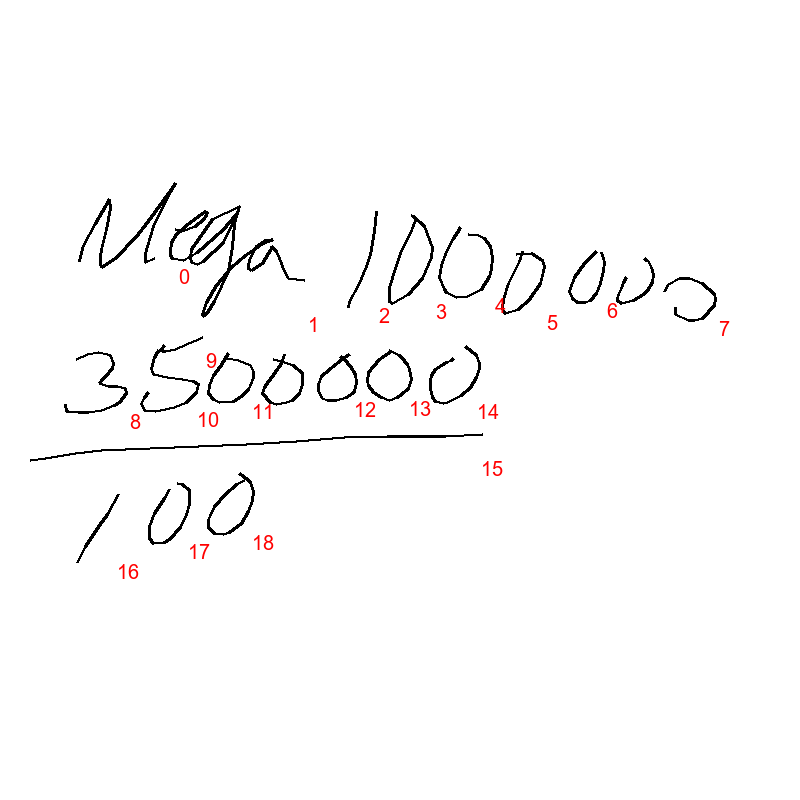 Mega 1000000
0 1 2 3 4 5 6 7
3500000
8 9 10 11 12 13 14
15
100
16 17 18